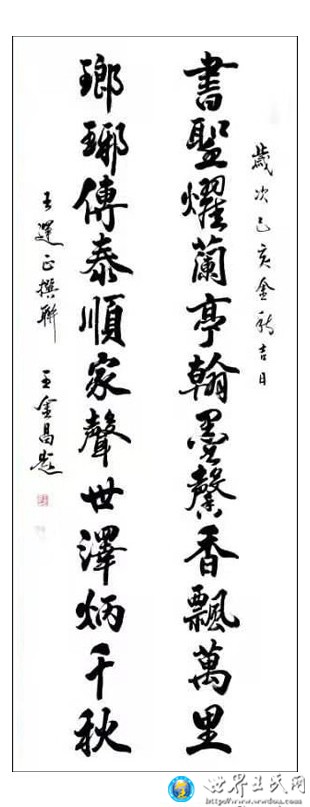 歲次己亥金秋吉日
書聖耀蘭亭翰墨馨香飄萬里
瑯琊傳泰順家聲世澤炳千秋
王 正撰聯 王金昌題
世界王氏网